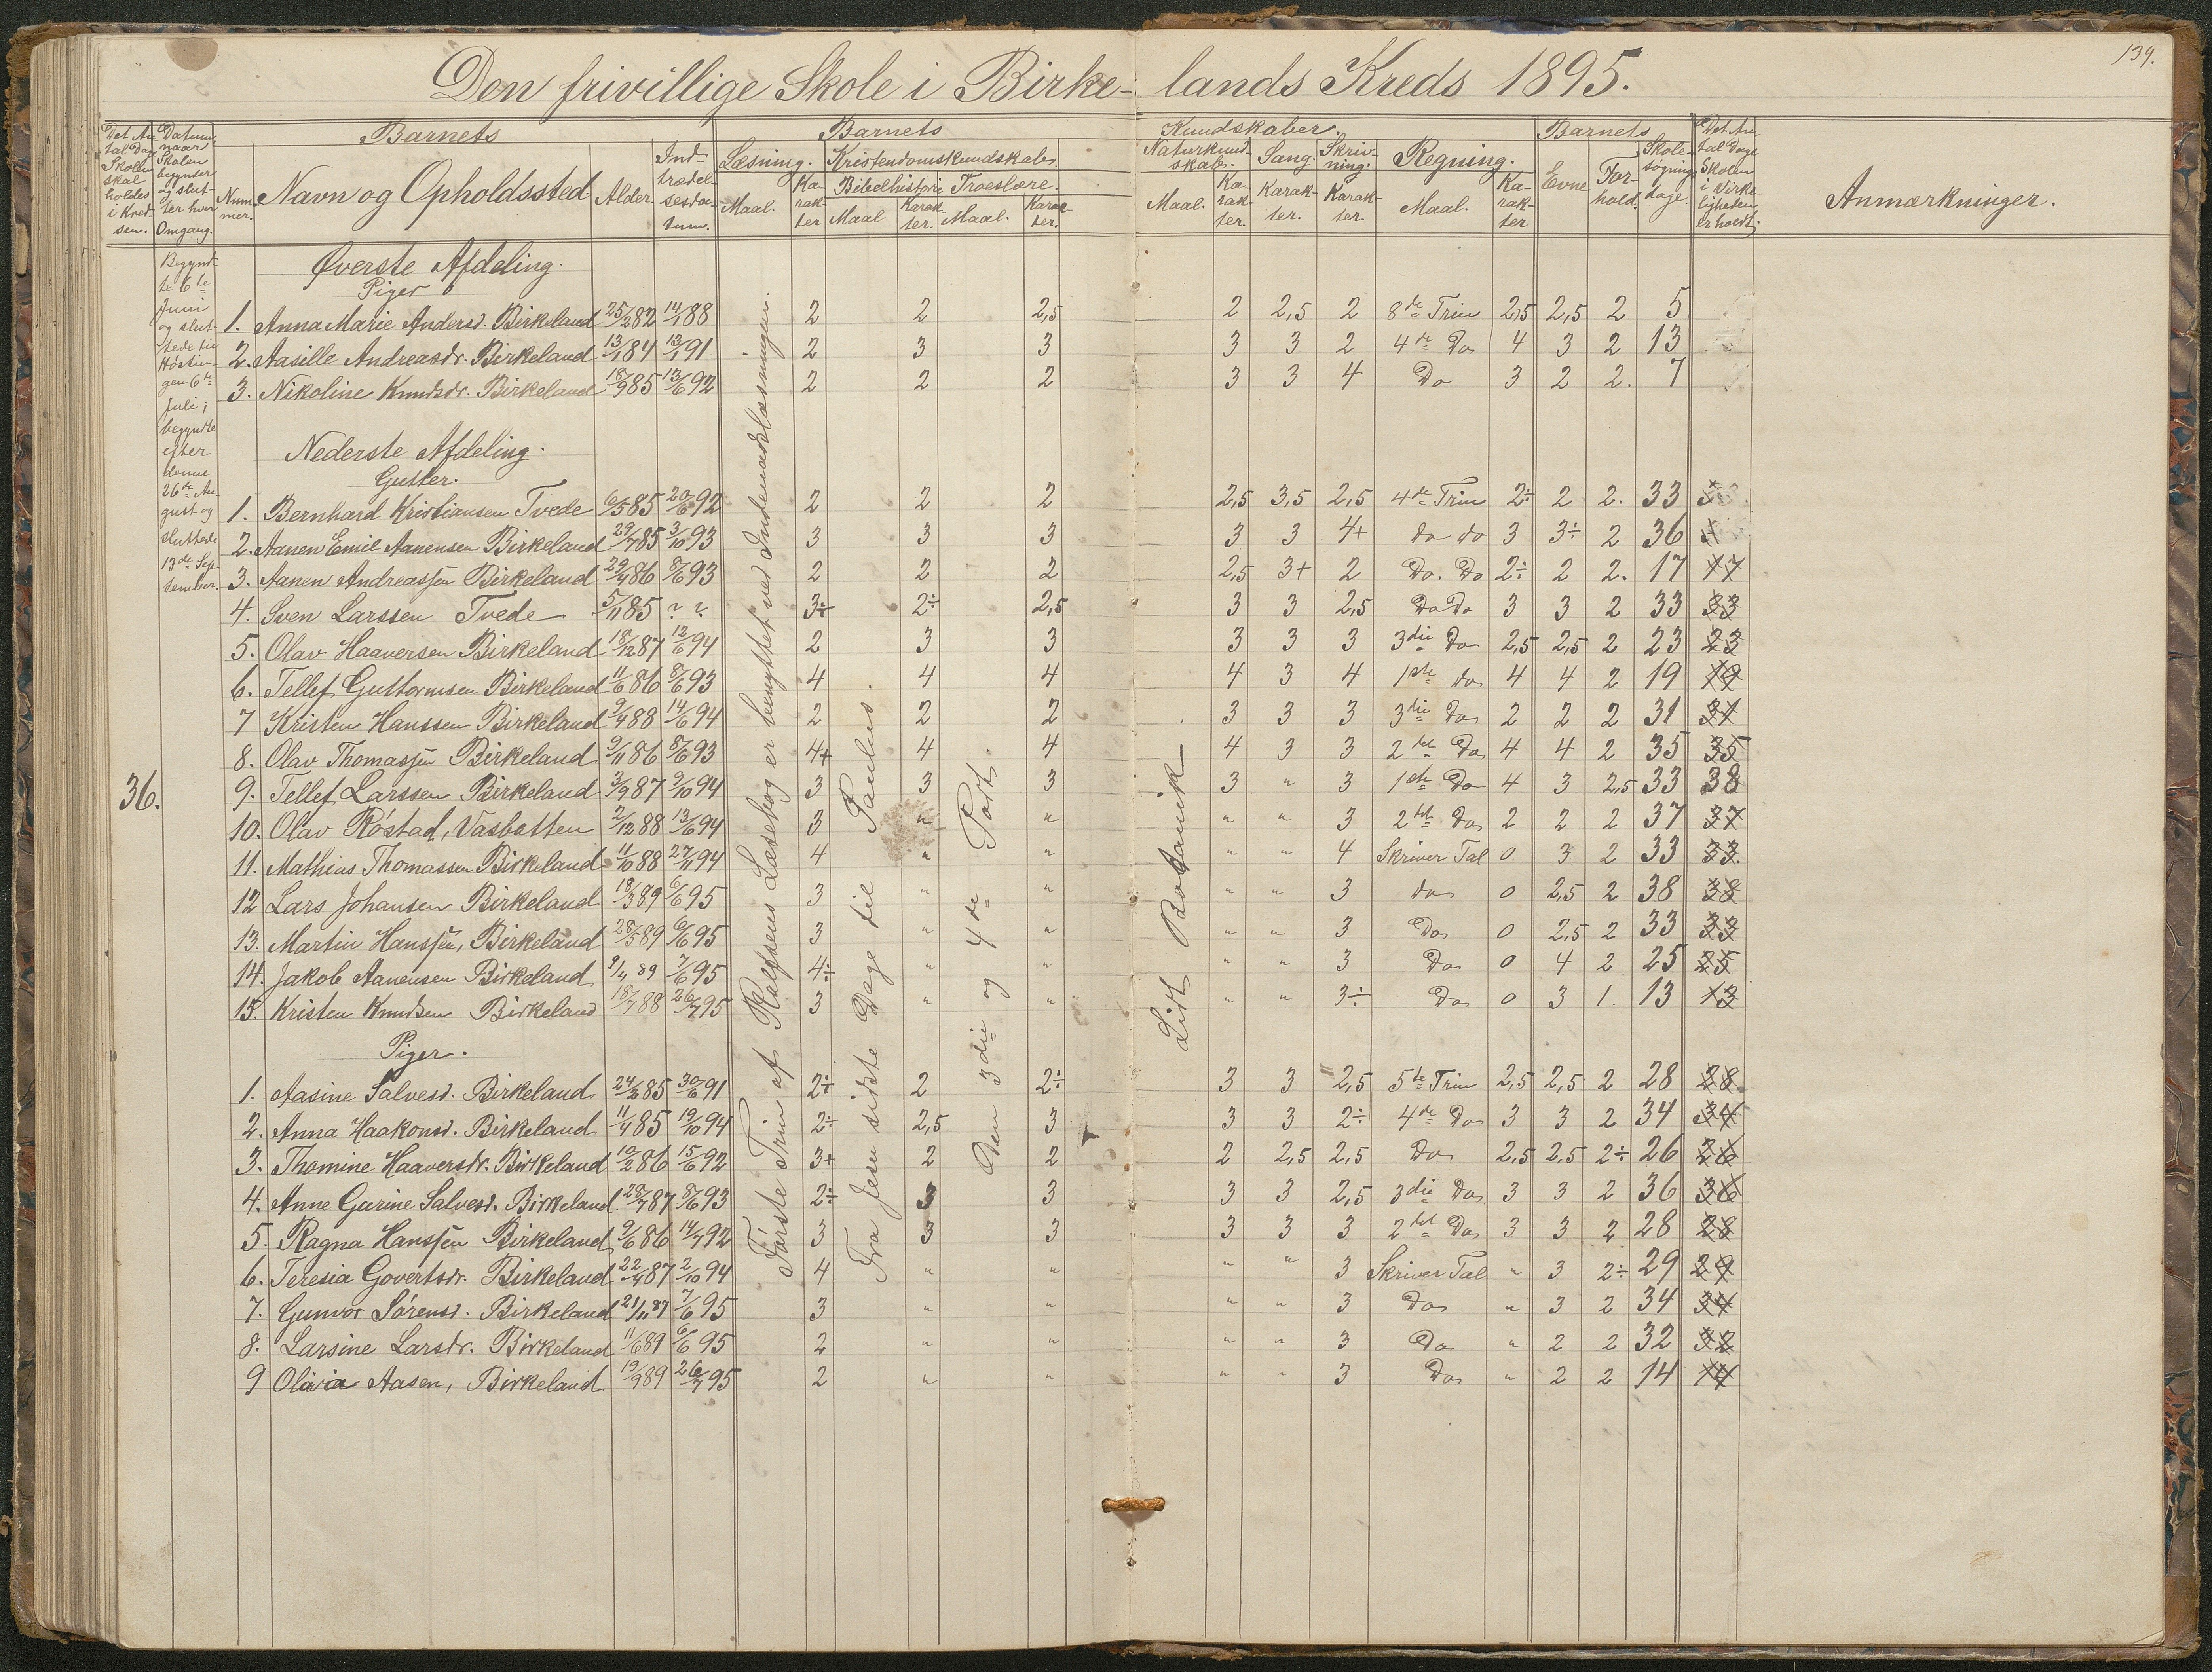 139.
Den frivillige Skole i Birkelands Kreds 1895.
Det Antal Dage Skolen skal holdes i Kredsen.
Datum, naar Skolen begynder og slutter hver Omgang.
Barnets
Nummer. Navn og Opholdssted. Alder. Indtrædelsesdatum.
Barnets Kundskaber.
Læsning. Kristendomskundskab.
Bibelhistorie Troeslære.
Maal. Karakter Maal Karakter. Maal. Karakter.
Naturkundskab. Sang. Skrivning. Regning.
Maal. Karakter. Karakter. Karakter. Maal. Karakter
Barnets
Evne Forhold. Skolesøgningsdage.
Det Antal Dage Skolen i Virkeligheden er holdt.
Anmærkninger.
36.
Begyndte 6te Juni og sluttede til Høstingen 6te Juli; begyndte efter denne 26de August og sluttede 13de September.
Første Trin af Rolfsens Læsebog er benyttet ved Indenadslæsningen.
Fra Jesu sidste Dage til Paulus.
Den 3die og 4de Part.
Lidt Botanik
Øverste Afdeling.
Piger
1. Anna Marie Andersd. Birkeland 25/2 82 14/1 88 2 2 2,5 2 2,5 2 8de Trin 2,5 2,5 2 5
2. Aasille Andreasdr. Birkeland 13/1 84 13/1 91 2 3 3 3 3 2 4de Do 4 3 2 13
3. Nikoline Knudsdr. Birkeland 18/9 85 13/6 92 2 2 2 3 3 4 Do 3 2 2. 7
Nederste Afdeling.
Gutter.
1. Bernhard Kristiansen Tvede 6/5 85 20/6 92 2 2 2 2,5 3,5 2,5 4de Trin 2÷ 2 2. 33
2. Aanen Emil Aanensen Birkeland 29/7 85 3/10 93 3 3 3 3 3 4+ do do 3 3÷ 2 36
3. Aanen Andreassen Birkeland 29/4 86 8/6 93 2 2 2 2,5 3+ 2 Do. Do 2÷ 2 2. 17 17
4. Sven Larssen Tvede 5/11 85 ? ? 3÷ 2÷ 2,5 3 3 2,5 Do Do 3 3 2 33 33
5. Olav Haaversen Birkeland 18/12 87 12/6 94 2 3 3 3 3 3 3die Do 2,5 2,5 2 23 23
6. Tellef Guttormsen Birkeland 11/6 86 8/6 93 4 4 4 4 3 4 1ste do 4 4 2 19 19
7 Kristen Hanssen Birkeland 9/4 88 14/6 94 2 2 2 3 3 3 3die Do 2 2 2 31 31
8. Olav Thomassen Birkeland 9/11 86 8/6 93 4+ 4 4 4 3 3 2det Do 4 4 2 35 35
9. Tellef Larssen Birkeland 3/9 87 9/10 94 3 3 3 3 " 3 1ste Do 4 3 2,5 33 38
10. Olav Røstad, Vasbotten 2/12 88 13/6 94 3 " " " " 3 2det Do 2 2 2 37 37
11. Mathias Thomassen Birkeland 11/10 88 27/11 94 4 " " " " 4 Skriver Tal 0 3 2 33 33.
12 Lars Johansen Birkeland 18/3 89 6/6 95 3 " " " " 3 do 0 2,5 2 38 38
13. Martin Hanssen, Birkeland 28/5 89 6/6 95 3 " " " " 3 Do 0 2,5 2 33 33
14. Jakob Aanensen Birkeland 9/4 89 7/6 95 4÷ " " " " 3 Do 0 4 2 25 25
15. Kristen Knudsen Birkeland 18/7 88 26/7 95 3 " " " " 3÷ Do 0 3 1. 13 13
Piger.
1. Aasine Salvesd. Birkeland 24/2 85 30/6 91 2÷ 2 2÷ 3 3 2,5 5te Trin 2,5 2,5 2 28 28
2. Anna Haakonsd. Birkeland 11/4 85 19/10 94 2÷ 2,5 3 3 3 2÷ 4de Do 3 3 2 34 34
3. Thomine Haaversdr. Birkeland 10/2 86 15/6 92 3+ 2 2 2 2,5 2,5 Do 2,5 2,5 2÷ 26 26
4. Anne Gurine Salvesd. Birkeland 28/7 87 8/6 93 2÷ 3 3 3 3 2,5 3die Do 3 3 2 36 36
5. Ragna Hanssen Birkeland 9/6 86 14/7 92 3 3 3 3 3 3 2det Do 3 3 2 28 28
6. Teresia Govertsdr. Birkeland 22/4 87 2/10 94 4 " " " " 3 Skriver Tal " 3 2÷ 29 29
7. Gunvor Sørensd. Birkeland 21/11 87 7/6 95 3 " " " " 3 Do " 3 2 34 34
8. Larsine Larsdr. Birkeland 11/6 89 6/6 95 2 " " " " 3 Do " 2 2 32 32
9 Olivia Aasen, Birkeland 19/9 89 26/7 95 2 " " " " 3 Do " 2 2 14 14